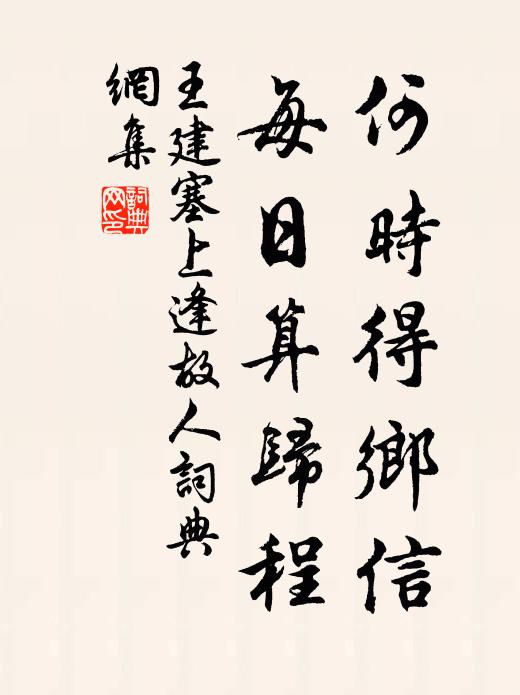 何時得鄉信
每日算歸程
王建塞上逢故人詞典
網集
詞典
网印